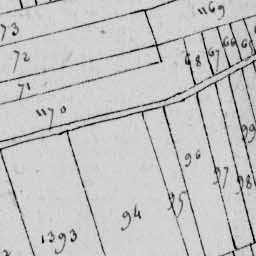 1169
73
72
68
67
66
65
71
1170
99
96
97
98
95
94
1393